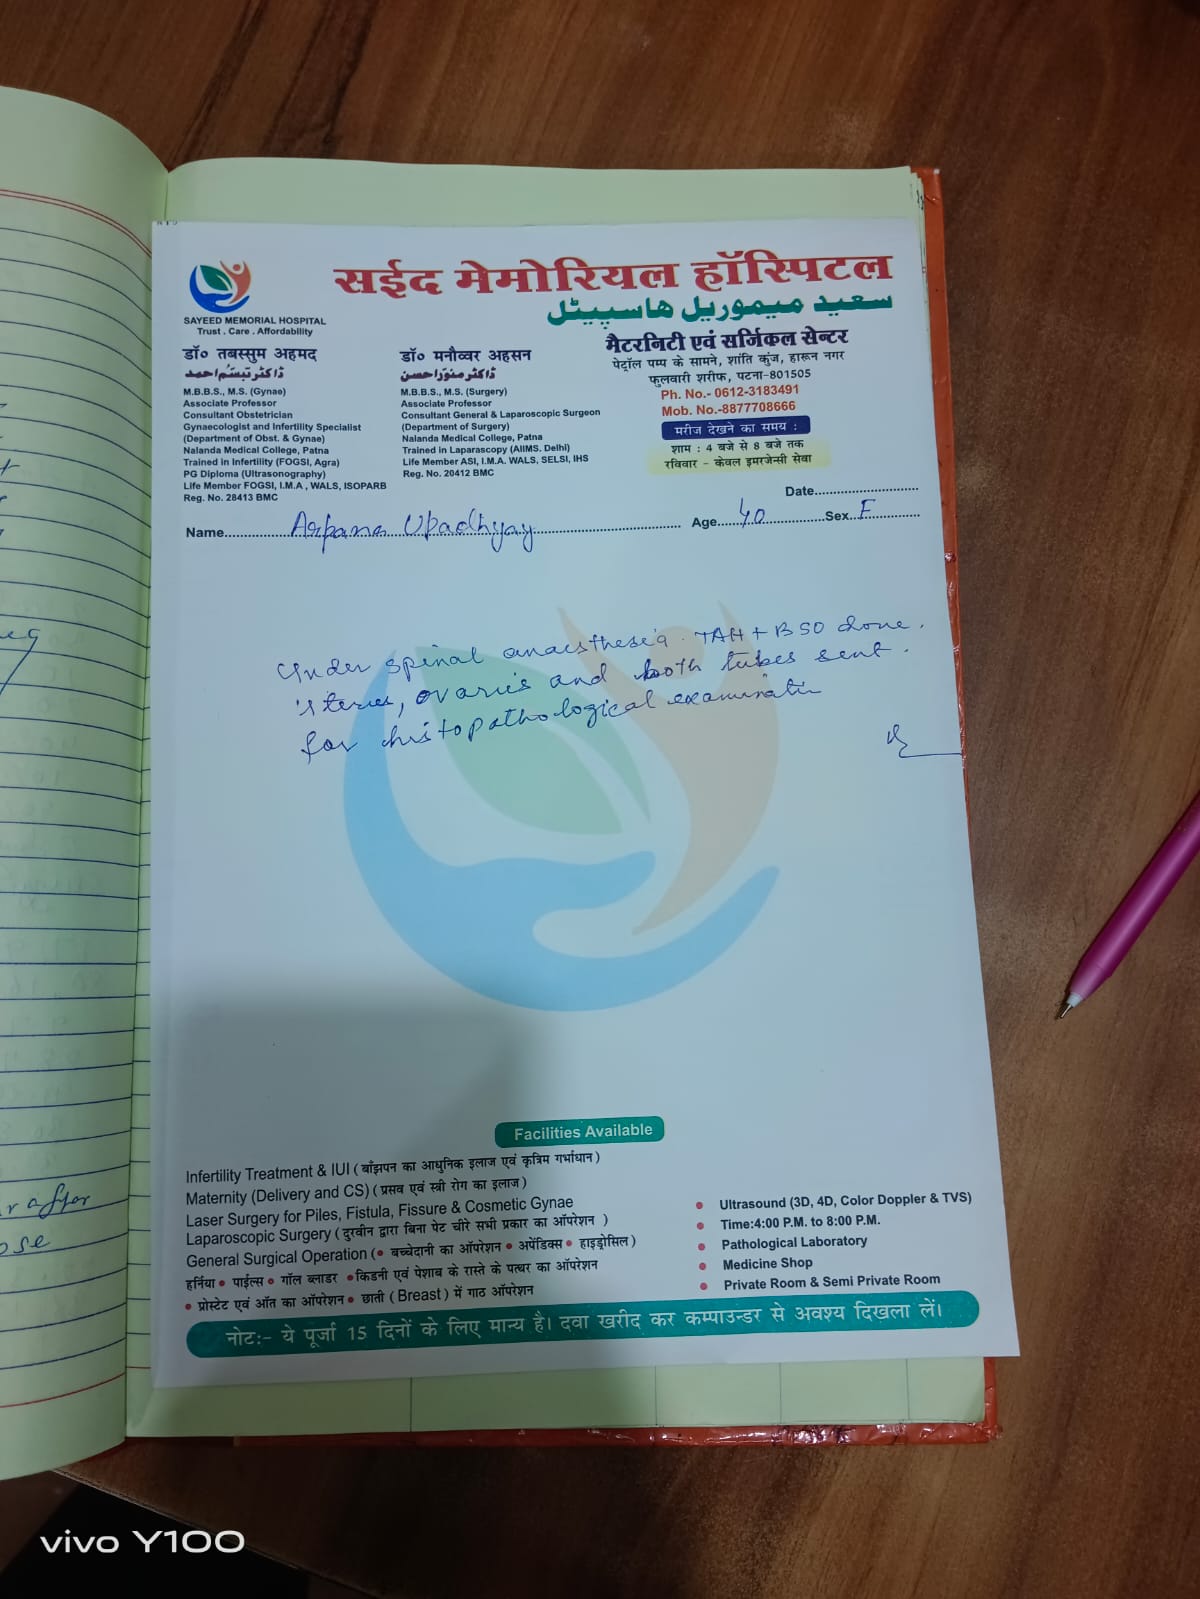 सईद मेमोरियल हॉस्पिटल
سعید میموریل ہاسپیٹل
SAYEED MEMORIAL HOSPITAL
Trust . Care . Affordability
मैटरनिटी एवं सर्जिकल सेन्टर
पेट्रॉल पम्प के सामने, शांति कुंज, हारून नगर
फुलवारी शरीफ, पटना-801505
Ph. No.- 0612-3183491
Mob. No.-8877708666
मरीज देखने का समय :
शाम : 4 बजे से 8 बजे तक
रविवार - केवल इमरजेन्सी सेवा
डॉ० तबस्सुम अहमद
ڈاکٹر تبسّم احمد
M.B.B.S., M.S. (Gynae)
Associate Professor
Consultant Obstetrician
Gynaecologist and Infertility Specialist
(Department of Obst. & Gynae)
Nalanda Medical College, Patna
Trained in Infertility (FOGSI, Agra)
PG Diploma (Ultrasonography)
Life Member FOGSI, I.M.A , WALS, ISOPARB
Reg. No. 28413 BMC
डॉ० मनौव्वर अहसन
ڈاکٹر منوّر احسن
M.B.B.S., M.S. (Surgery)
Associate Professor
Consultant General & Laparoscopic Surgeon
(Department of Surgery)
Nalanda Medical College, Patna
Trained in Laparascopy (AIIMS. Delhi)
Life Member ASI, I.M.A. WALS, SELSI, IHS
Reg. No. 20412 BMC
Date
Name Arpana Upadhyay Age 40 Sex F
Under spinal anaesthesia TAH + BSO done.
uterus, ovaries and both tubes sent.
for histopathological examination
Facilities Available
Infertility Treatment & IUI ( बाँझपन का आधुनिक इलाज एवं कृत्रिम गर्भाधान )
Maternity (Delivery and CS) ( प्रसव एवं स्त्री रोग का इलाज )
Laser Surgery for Piles, Fistula, Fissure & Cosmetic Gynae
Laparoscopic Surgery ( दुरवीन द्वारा बिना पेट चीरे सभी प्रकार का ऑपरेशन )
General Surgical Operation (• बच्चेदानी का ऑपरेशन • अपेंडिक्स • हाइड्रोसिल )
हर्निया • पाईल्स • गॉल ब्लाडर • किडनी एवं पेशाब के रास्ते के पत्थर का ऑपरेशन
• प्रोस्टेट एवं आँत का ऑपरेशन • छाती ( Breast ) में गाठ ऑपरेशन
• Ultrasound (3D, 4D, Color Doppler & TVS)
• Time:4:00 P.M. to 8:00 P.M.
• Pathological Laboratory
• Medicine Shop
• Private Room & Semi Private Room
नोटः- ये पूर्जा 15 दिनों के लिए मान्य है। दवा खरीद कर कम्पाउन्डर से अवश्य दिखला लें।
vivo Y100